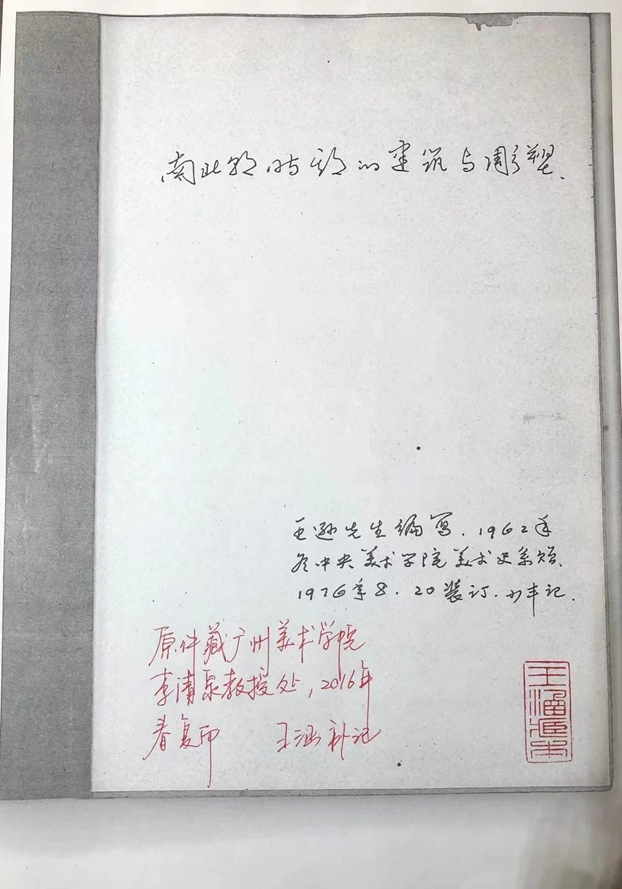 南北朝时期的建筑与雕塑.
王逊先生编写. 1962年
冬中央美术学院美术史系贻.
1976年8.20装订. 小丰记.
原件藏广州美术学院
李清泉教授处, 2016年
春复印 王涵补记
王涵